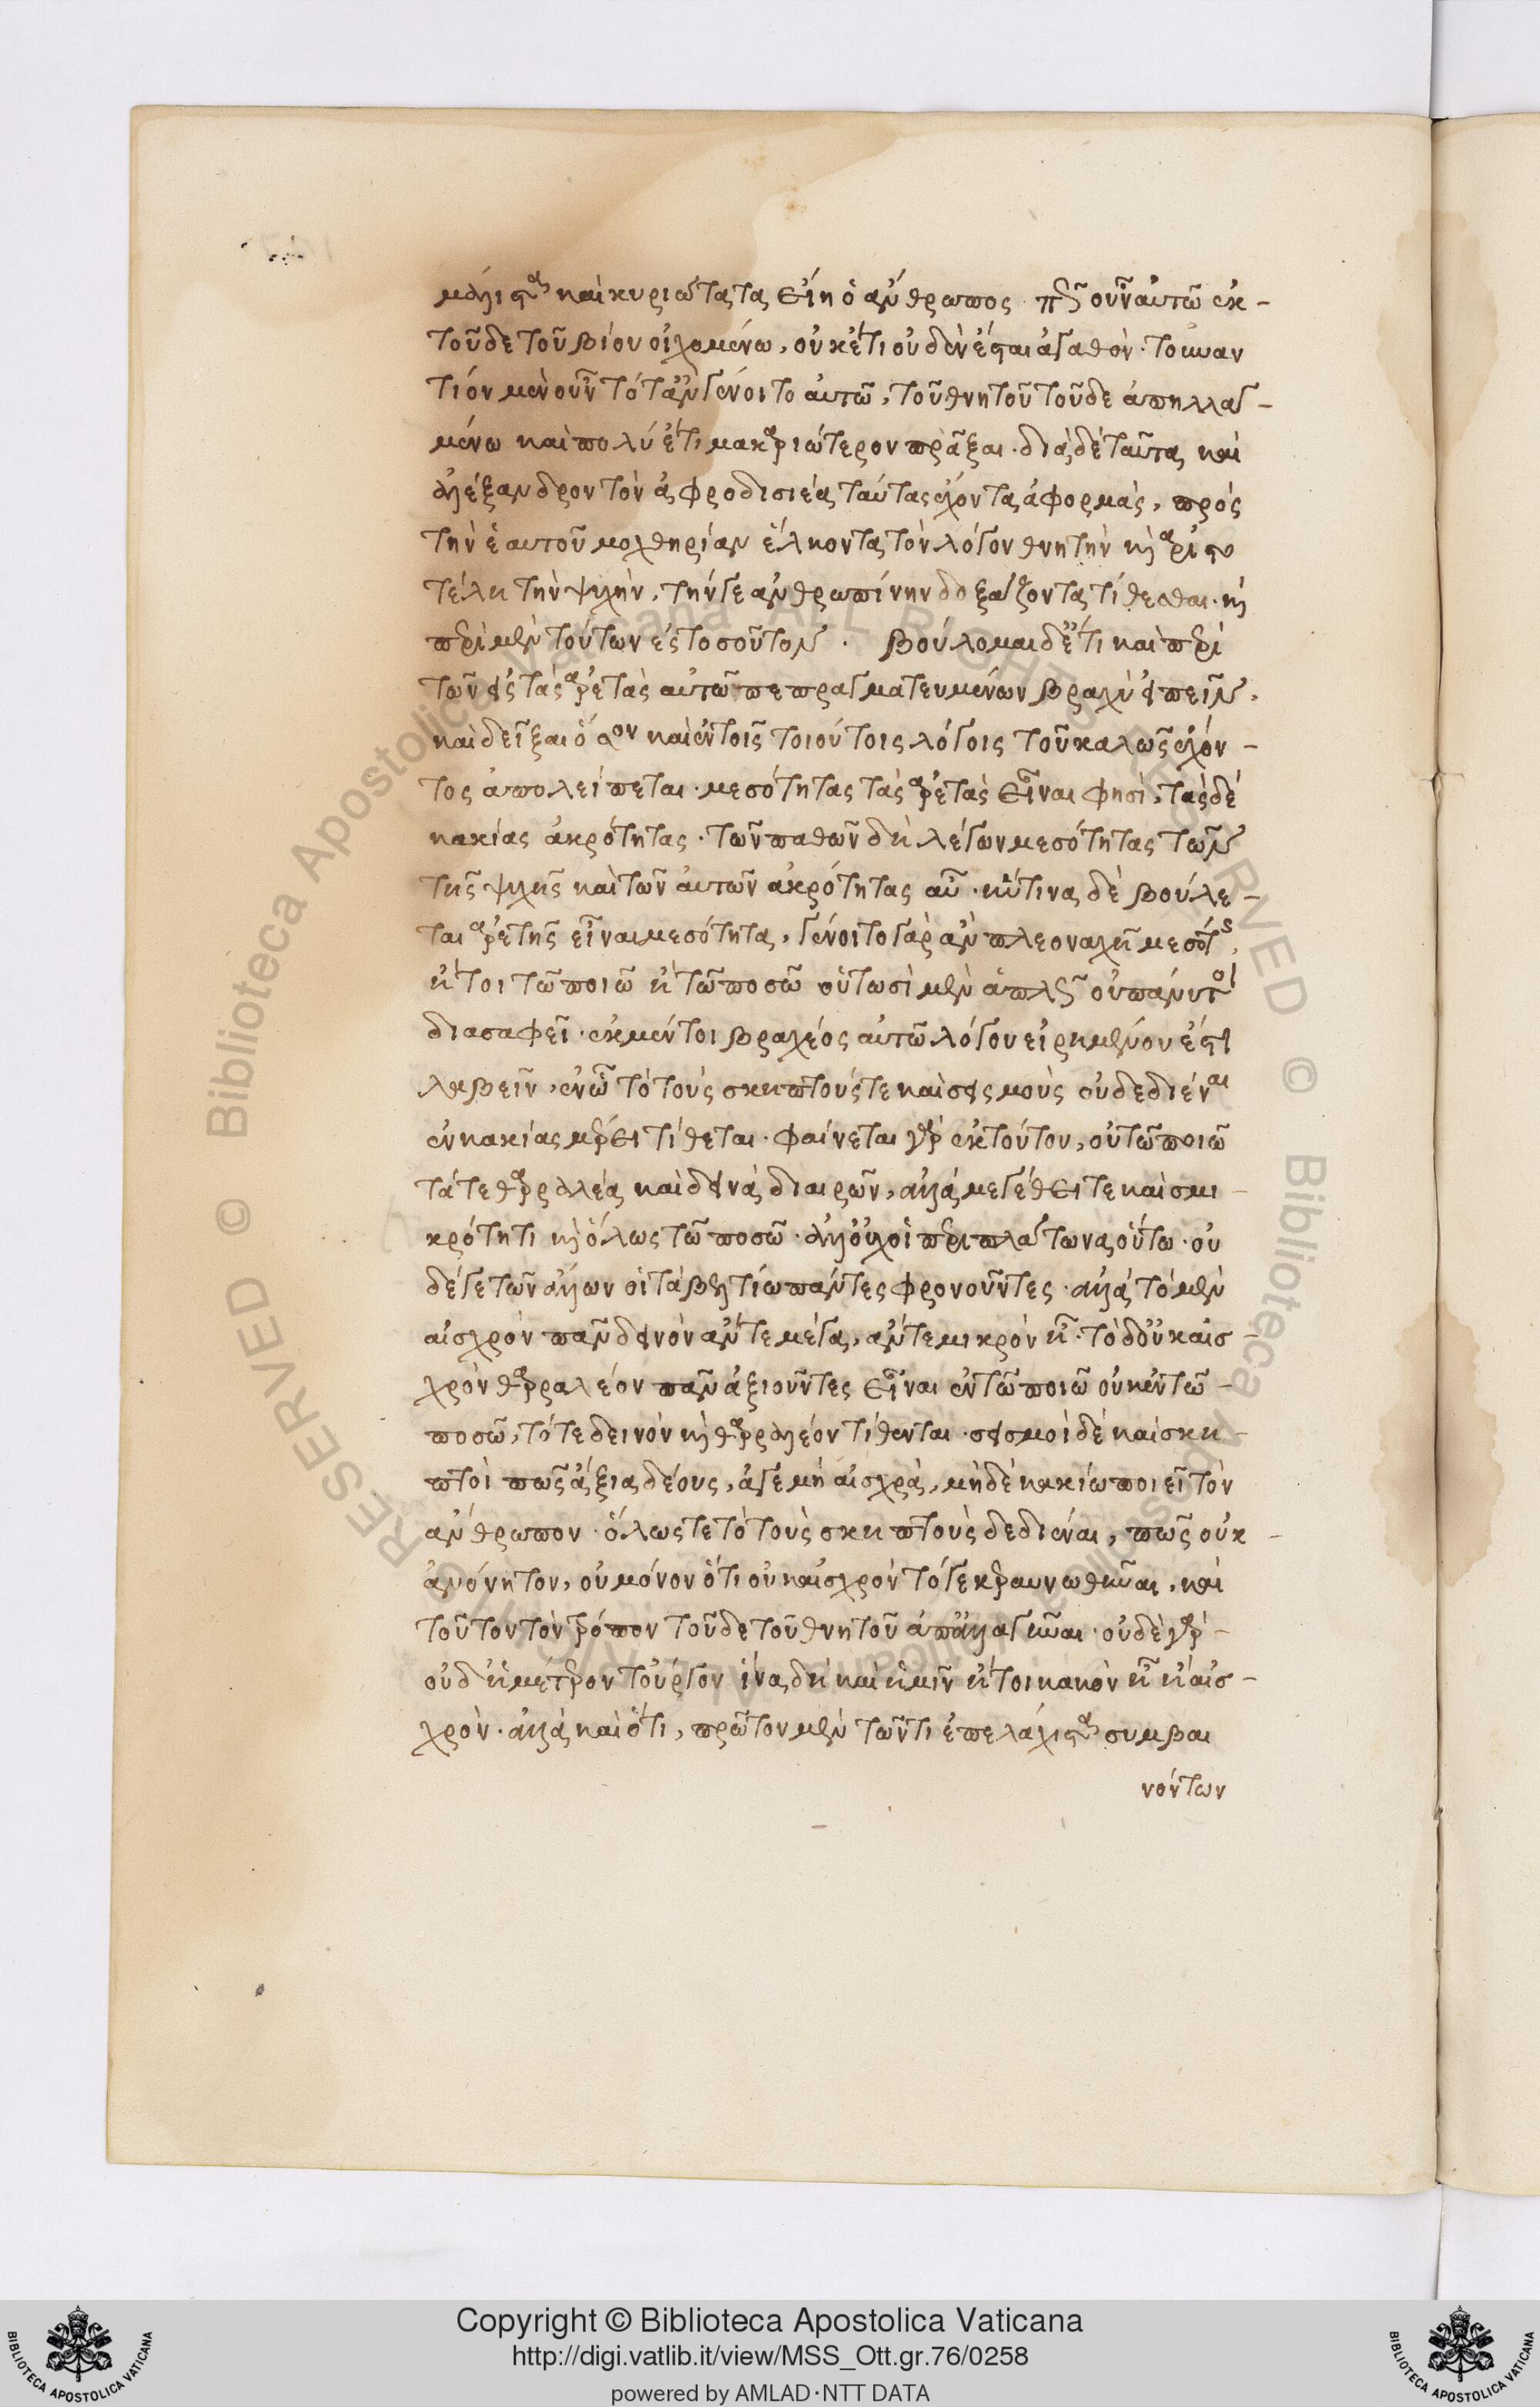 μάλιστα καὶ κυριώτατα εἴη ὁ ἄνθρωπος. πῶς οὖν αὐτῶ ἐκ-
τοῦδε τοῦ βίου οἰχομένω, οὐκέτι οὐδὲν ἔσται ἀγαθὸν. τοὐναν
τίον μὲν οὖν τότ' ἂν γένοιτο αὐτῶ, τοῦ θνητοῦ τοῦδε ἀπηλλαγ-
μένω καὶ πολὺ ἔτι μακαριώτερον πρᾶξαι. διὰ δὲ ταῦτα καὶ
ἀλέξανδρον τὸν ἀφροδισιέα ταύτας ἔχοντα ἀφορμὰς, πρὸς
τὴν ἑαυτοῦ μοχθηρίαν ἕλκοντα τὸν λόγον θνητὴν καὶ ἀριστο
τέλη τὴν ψυχὴν, τήν γε ἀνθρωπίνην δοξάζοντα τίθεσθαι. καὶ
περὶ μὲν τούτων ἐς τοσοῦτον. βούλομαι δ' ἔτι καὶ περὶ
τῶν εἰς τὰς ἀρετὰς αὐτῶ πεπραγματευμένων βραχὺ εἰπεῖν.
καὶ δεῖξαι ὅσον καὶ ἐν τοῖς τοιούτοις λόγοις τοῦ καλῶς ἔχον-
τος ἀπολείπεται. μεσότητας τὰς ἀρετὰς εἶναι φησὶ, τὰς δὲ
κακίας ἀκρότητας. τῶν παθῶν δὴ λέγων μεσότητας τῶν
τῆς ψυχῆς καὶ τῶν αὐτῶν ἀκρότητας αὖ. ἥντινα δὲ βούλε-
ται ἀρετῆς εἶναι μεσότητα, γένοιτο γὰρ ἂν πλεοναχῆ μεσότης,
ἤτοι τῶ ποιῶ ἢ τῶ ποσῶ οὑτωσὶ μὲν ἁπλῶς οὐ πάνυ τοι
διασαφεῖ. ἐκ μέντοι βραχέος αὐτῶ λόγου εἰρημένου ἔστι
λαβεῖν, ἐν ὧ τὸ τοὺς σκηπτούς τε καὶ σεισμοὺς οὐ δεδιέναι
ἐν κακίας μέρει τίθεται. φαίνεται γὰρ ἐκ τούτου, οὐ τῶ ποιῶ
τά τε θαρραλέα καὶ δεινὰ διαιρῶν, ἀλλὰ μεγέθει τε καὶ σμι-
κρότητι καὶ ὅλως τῶ ποσῶ. ἀλλ' οὐχ οἱ περὶ πλάτωνα οὕτω. οὐ
δέ γε τῶν ἄλλων οἱ τὰ βελτίω πάντες φρονοῦντες. ἀλλὰ τὸ μὲν
αἰσχρὸν πᾶν δεινὸν ἄν τε μέγα, ἄν τε μικρὸν ἦ. τὸ δ' οὐκ αἰσ-
χρὸν θαρραλέον πᾶν ἀξιοῦντες εἶναι ἐν τῶ ποιῶ οὐκ ἐν τῶ-
ποσῶ, τό τε δεινὸν καὶ θαρραλέον τίθενται. σεισμοὶ δὲ καὶ σκη-
πτοὶ πῶς ἄξια δέους, ἅ γε μὴ αἰσχρὰ, μὴ δὲ κακίω ποιεῖ τὸν
ἄνθρωπον. ὅλως τε τὸ τοὺς σκηπτοὺς δεδιέναι, πῶς οὐκ-
ἀνόνητον, οὐ μόνον ὅτι οὐκ αἰσχρὸν τό γε κεραυνωθῆναι, καὶ
τοῦτον τὸν τρόπον τοῦδε τοῦ θνητοῦ ἀπαλλαγῆναι. οὐδὲ γὰρ-
οὐδ' ἡμέτερον τοὖργον ἵνα δὴ καὶ ἡμῖν ἤτοι κακὸν ἦ ἢ αἰσ-
χρὸν. ἀλλὰ καὶ ὅτι, πρῶτον μὲν τῶν τι ἐπ' ἐλάχιστα συμβαι
νόντων
Copyright © Biblioteca Apostolica Vaticana
http://digi.vatlib.it/view/MSS_Ott.gr.76/0258
powered by AMLAD·NTT DATA